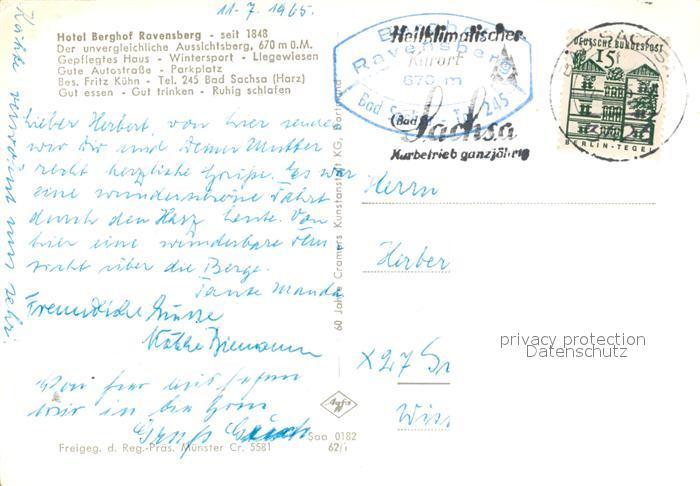 11-7.1965.
Hotel Berghof Ravensberg - seit 1848
Der unvergleichliche Aussichtsberg, 670 m ü.M.
Gepflegtes Haus - Wintersport - Liegewiesen
Gute Autostraße - Parkplatz
Bes. Fritz Kühn - Tel. 245 Bad Sachsa (Harz)
Gut essen - Gut trinken - Ruhig schlafen
Lieber Herbert, von hier senden
wir Dir und Deiner Mutter
recht herzliche Grüße. Es war
eine wunderschöne Fahrt
durch den Harz heute. Von
hier eine wunderbare Fern
sicht über die Berge.
Tante Wanda
Freundliche Grüsse
Käthe
in den Harz
Gruß
Freigeg. d. Reg.-Präs. Münster Cr. 5581
Saa 0182
62/i
60 Jahre Cramers Kunstanstalt KG, Dortmund
Agfa
Berghof
Ravensberg
670 m
Bad Sachsa Tel. 245
Heilklimatischer
Kurort
(Bad)
Sachsa
Kurbetrieb ganzjährig
BAD SACHSA
DEUTSCHE BUNDESPOST
15
BERLIN-TEGEL
Herrn
Herber
X27
privacy protection
Datenschutz